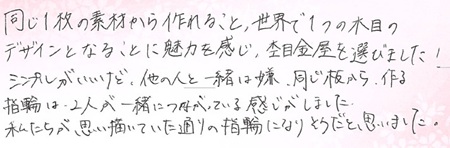 同じ1枚の素材から作れること，世界で1つの木目の
デザインとなることに魅力を感じ，杢目金屋を選びました！
シンプルがいいけど、他の人と一緒は嫌、同じ板から、作る
指輪は、2人が一緒につながっている感じがしました。
私たちが思い描いていた通りの指輪になりそうだと思いました。